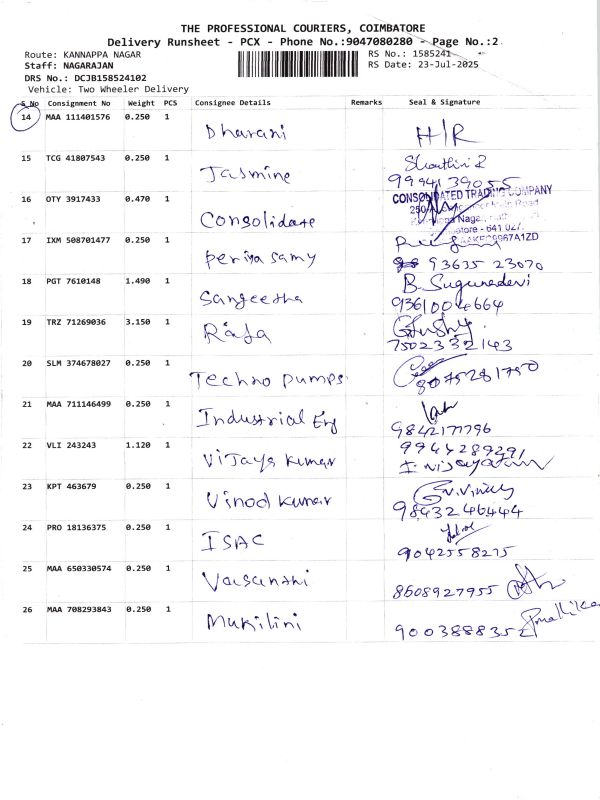 THE PROFESSIONAL COURIERS, COIMBATORE
Delivery Runsheet - PCX - Phone No.:9047080280 - Page No.:2
Route: KANNAPPA NAGAR RS No.: 1585241
Staff: NAGARAJAN RS Date: 23-Jul-2025
DRS No.: DCJB158524102
Vehicle: Two Wheeler Delivery
S No Consignment No Weight PCS Consignee Details Remarks Seal & Signature
14 MAA 111401576 0.250 1 Dharani H/R
15 TCG 41807543 0.250 1 Jasmine
9994139055
16 OTY 3917433 0.470 1 Consolidate CONSOLIDATED TRADING COMPANY
17 IXM 508701477 0.250 1 Periya samy
93635 23070
18 PGT 7610148 1.490 1 Sangeetha B. Sugunadevi
9361004664
19 TRZ 71269036 3.150 1 Raja
7502332143
20 SLM 374678027 0.250 1 Techno pumps
8075281790
21 MAA 711146499 0.250 1 Industrial Eng
9842171796
22 VLI 243243 1.120 1 Vijaya kumar 9944289291
23 KPT 463679 0.250 1 Vinod kumar
9843246444
24 PRO 18136375 0.250 1 ISAC
9042558275
25 MAA 650330574 0.250 1 Vasanthi 8608927955
26 MAA 708293843 0.250 1 Mukilini 9003888352